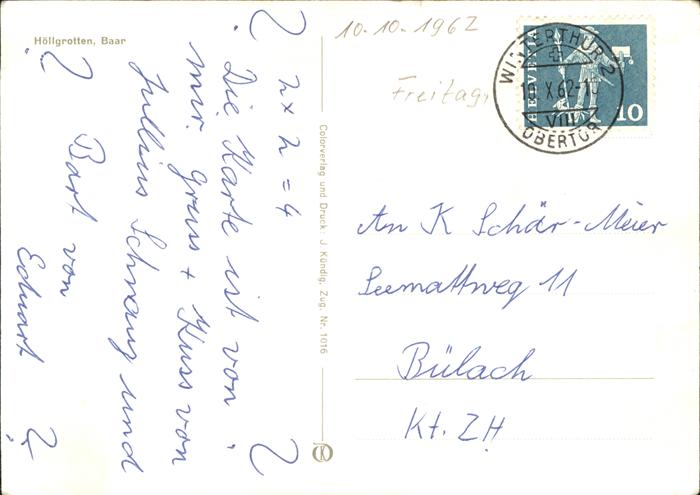 Höllgrotten, Baar
2 × 2 = 4
Die Karte ist von
mir. Gruss + Kuss von
Jullius Schnauz und
Bart von
Eduart
Colorverlag und Druck: J. Kündig, Zug. Nr. 1016
10.10.1962
Freitag,
HELVETIA
10
WINTERTHUR 2
10.X.62-1
VIII
OBERTOR
An K Schär-Meier
Seemattweg 11
Bülach
Kt. ZH